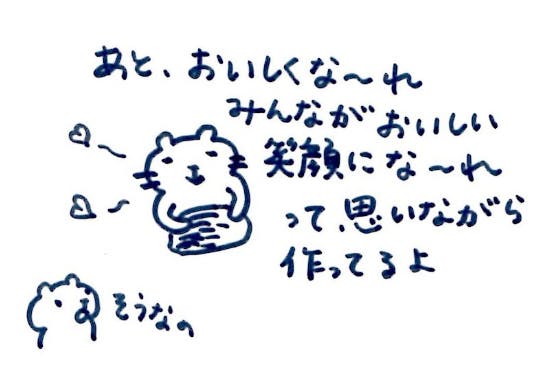 あと、おいしくな〜れ
みんながおいしい
笑顔にな〜れ
って思いながら
作ってるよ
そうなの